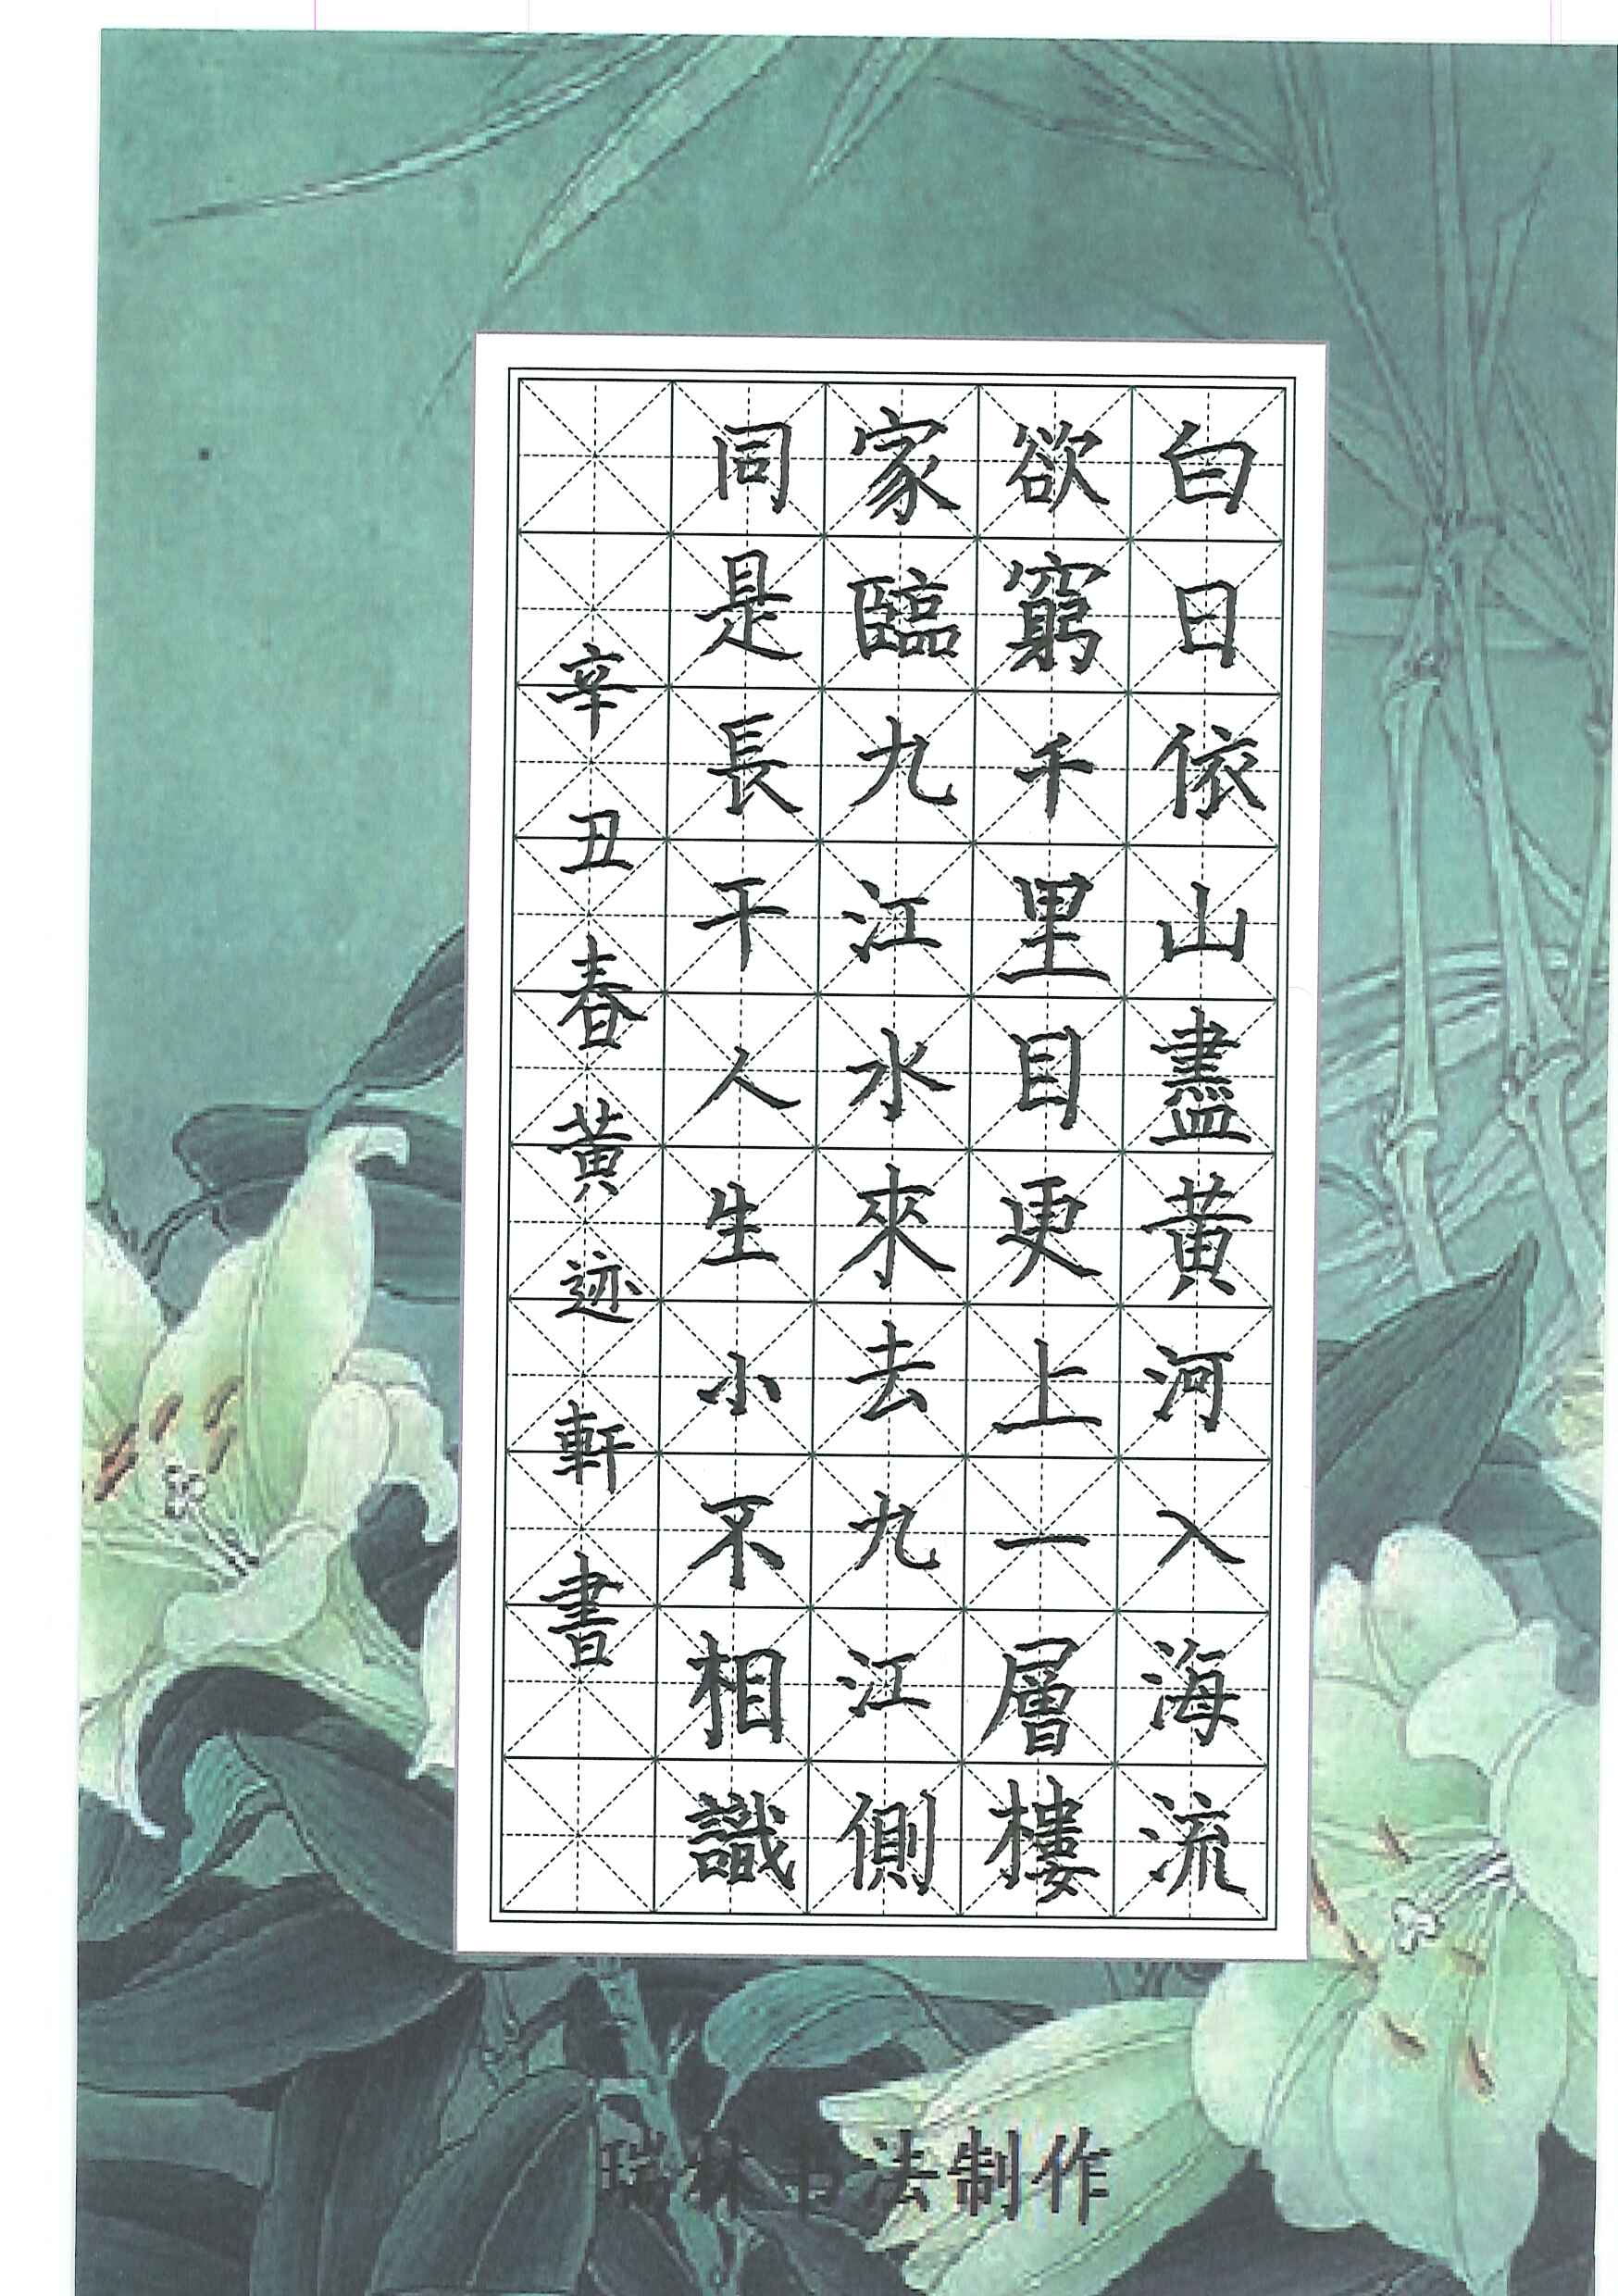 白日依山盡黃河入海流
欲窮千里目更上一層樓
家臨九江水來去九江側
同是長干人生小不相識
辛丑春黃迹軒書
瑞林书法制作